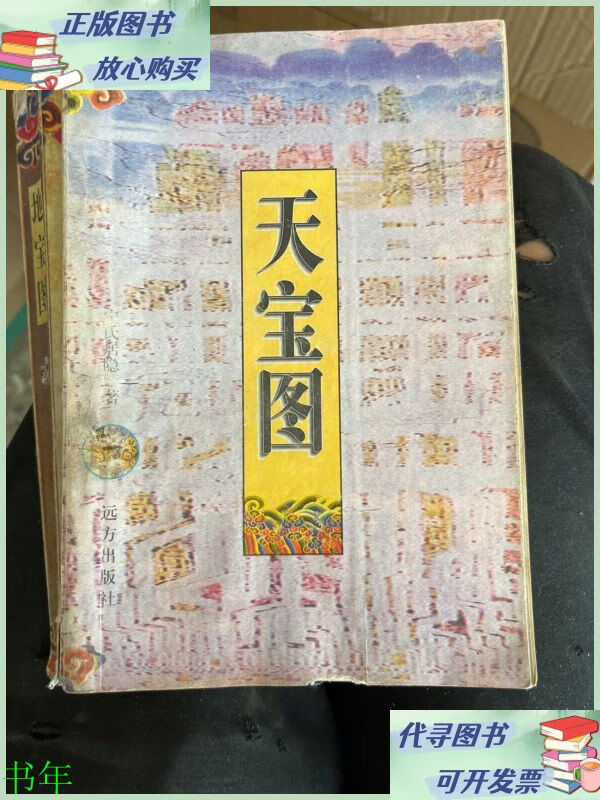 正版图书
放心购买
地宝图
天宝图
氏居隐 著
远方出版社
代寻图书
可开发票
书年